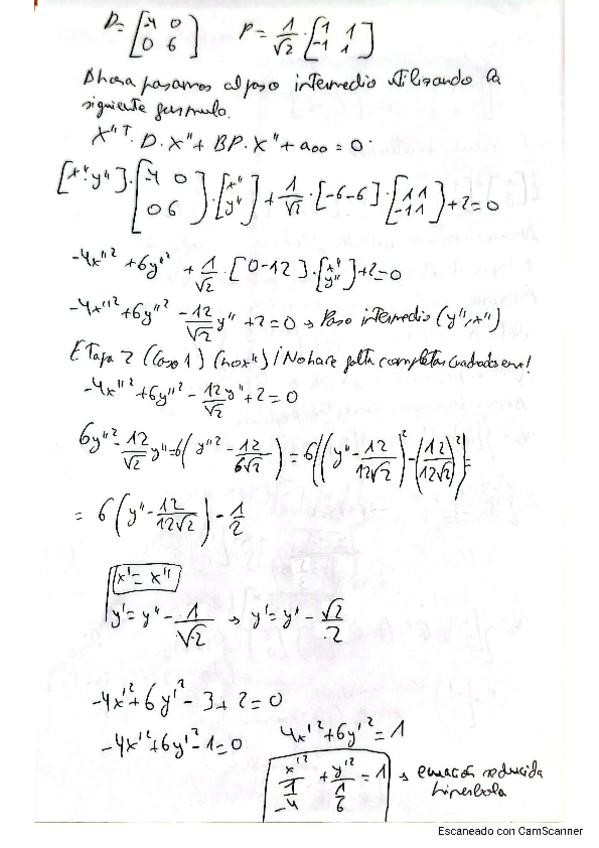 D = [-4 0 / 0 6] P = 1/√2 · [1 1 / -1 1]
Ahora pasamos al paso intermedio utilizando la
siguiente formula.
X''ᵀ · D · X'' + BP · X'' + a₀₀ = 0
[x'' y''] · [-4 0 / 0 6] · [x'' / y''] + 1/√2 · [-6 -6] · [1 1 / -1 1] + 2 = 0
-4x''² + 6y''² + 1/√2 · [0 -12] · [x'' / y''] + 2 = 0
-4x''² + 6y''² - 12/√2 y'' + 2 = 0 → Paso intermedio (y'', x'')
Etapa 2 (Caso 1) (no x'') / No hace falta completar cuadrados en x!
-4x''² + 6y''² - 12/√2 y'' + 2 = 0
6y''² - 12/√2 y'' = 6(y''² - 12/6√2) = 6((y'' - 12/12√2)² - (12/12√2)²) =
= 6(y'' - 12/12√2) - 1/2
x' = x''
y' = y'' - 1/√2 → y' = y'' - √2/2
-4x'² + 6y'² - 3 + 2 = 0
-4x'² + 6y'² - 1 = 0 4x'² + 6y'² = 1
x'²/(1/-4) + y'²/(1/6) = 1 → ecuación reducida
hiperbola
Escaneado con CamScanner